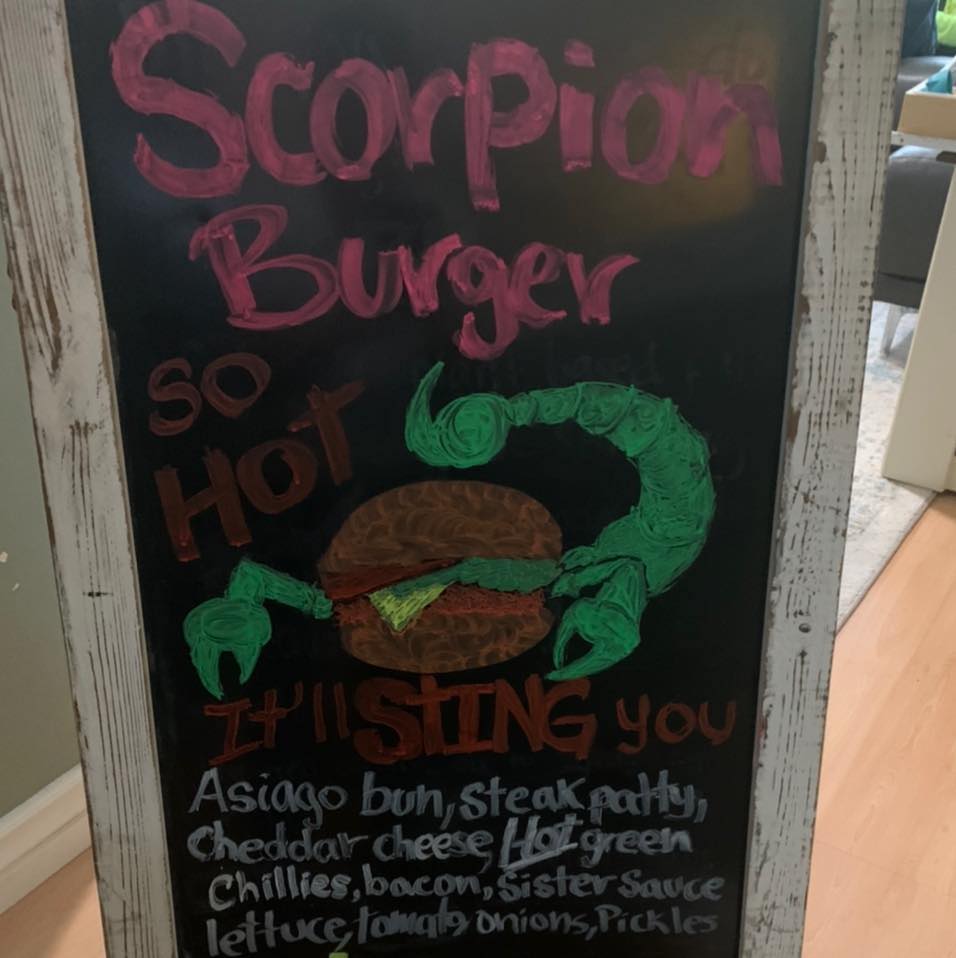 Scorpion
Burger
SO
HOT
It'll STING you
Asiago bun, Steak patty,
Cheddar cheese, Hot green
Chillies, bacon, Sister Sauce
lettuce, tomato, onions, Pickles